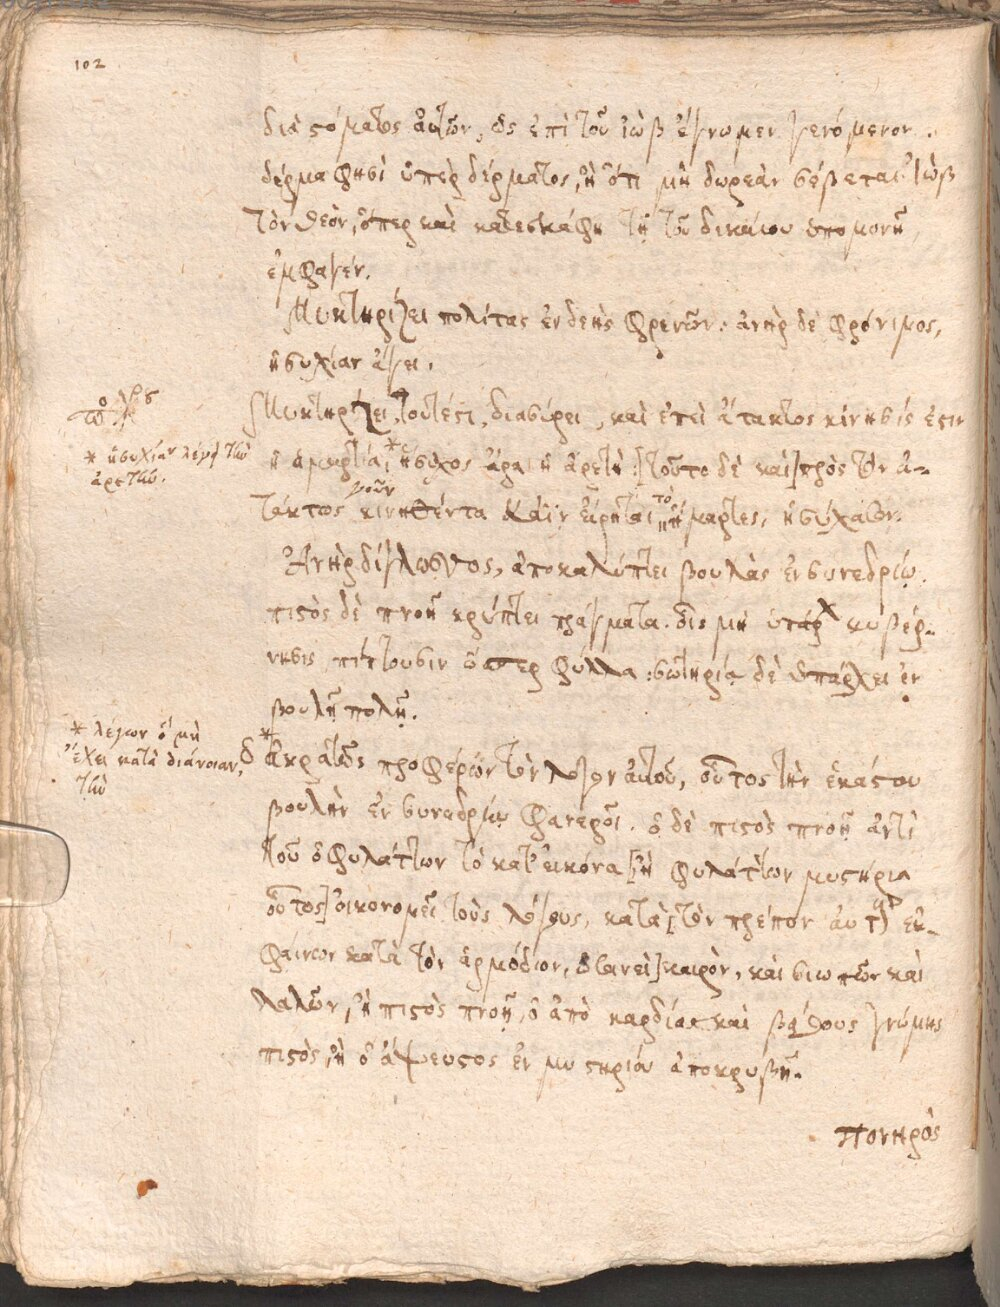 102
διὰ στόματος αὐτῶν, ὡς ἐπὶ τοῦ ἰὼβ ἔγνωμεν γενόμενον.
δέρμα φησὶ ὑπὲρ δέρματος, ἢ ὅτι μὴ δωρεὰν σέβεται ἰὼβ
τὸν θεὸν, ὅπερ καὶ κατεσκάφη τῇ τοῦ δικαίου ὑπομονῇ
Μυκτηρίζει πολίτας ἐνδεὴς φρενῶν. ἀνὴρ δὲ φρόνιμος,
ἡσυχίαν ἄγει.
Μυκτηρίζει, τουτέστι, διασύρει, καὶ ἐπεὶ ἄτακτος κίνησίς ἐστιν
* ἡσυχίαν λέγει τὴν
ἀρετήν.
ἡ ἁμαρτία,* ἥσυχος ἄρα ἡ ἀρετὴ. [τοῦτο δὲ καὶ] πρὸς τὸν ἀ-
τάκτως γοῦν κινηθέντα Κάϊν εἴρηται τὸ ἥμαρτες, ἡσύχασον.
Ἀνὴρ δίγλωσσος, ἀποκαλύπτει βουλὰς ἐν συνεδρίῳ.
πιστὸς δὲ πνοῇ κρύπτει πράγματα. οἷς μὴ ὑπάρχει κυβέρ-
νησις, πίπτουσιν ὥσπερ φύλλα. σωτηρία δὲ ὑπάρχει ἐν
βουλῇ πολλῇ.
* λέγων ὃ μὴ
ἔχει κατὰ διάνοιαν,
τὴν
ὁ * ἀκρατῶς προφέρων τὸν λόγον αὐτοῦ, οὗτος τὴν ἑκάστου
βουλὴν ἐν συνεδρίῳ φανεροῖ. ὁ δὲ πιστὸς πνοῇ ἀντὶ
τοῦ ὁ φυλάττων τὸ κατ' εἰκόνα [ἢ φυλάττων μυστήρια
οὗτος] οἰκονομεῖ τοὺς λόγους, κατὰ [τὸν πρέποντα αὐτῷ ἐκ-
φαίνων κατὰ τὸν ἁρμόδιον, καιρὸν, καὶ σιωπῶν καὶ
λαλῶν, ἢ πιστὸς πνοῇ, ὁ ἀπὸ καρδίας καὶ βάθους γνώμης
πιστὸς, ἢ ὁ ἄψευστος ἐν μυστηρίου ἀποκρυβῇ.
Πονηρὸς